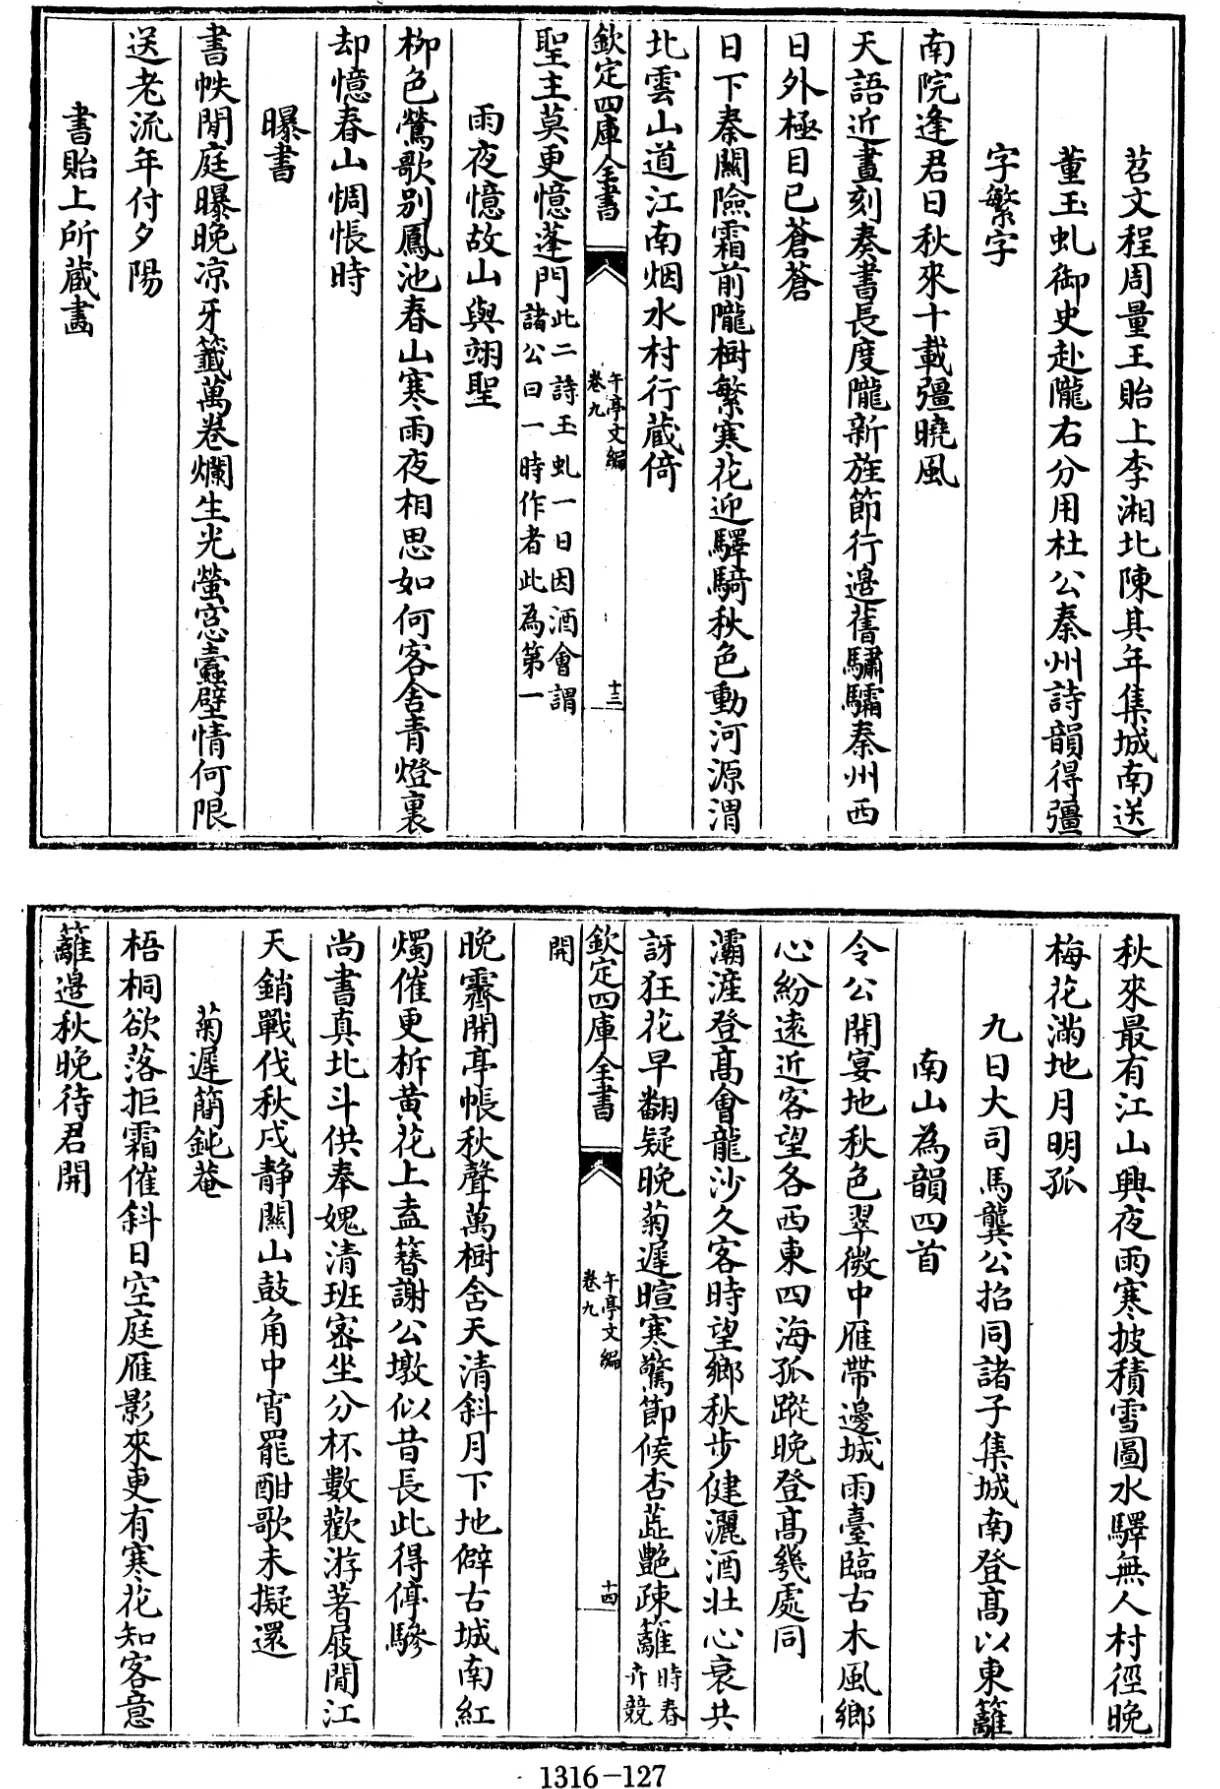 苕文程周量王貽上李湘北陳其年集城南送
董玉虬御史赴隴右分用杜公秦州詩韻得彊
字繁字
南院逢君日秋來十載彊曉風
天語近晝刻奏書長度隴新旌節行邊舊驌驦秦州西
日外極目已蒼蒼
日下秦關險霜前隴樹繁寒花迎驛騎秋色動河源渭
北雲山道江南烟水村行藏倚
欽定四庫全書
午亭文編
卷九
十三
聖主莫更憶蓬門此二詩玉虬一日因酒會謂
諸公曰一時作者此為第一
雨夜憶故山與翊聖
柳色鶯歌別鳳池春山寒雨夜相思如何客舍青燈裏
却憶春山惆悵時
曝書
書帙閒庭曝晚凉牙籤萬卷爛生光螢窓蠧壁情何限
送老流年付夕陽
書貽上所藏畵
秋來最有江山興夜雨寒披積雪圖水驛無人村徑晚
梅花滿地月明孤
九日大司馬龔公招同諸子集城南登高以東籬
南山為韻四首
令公開宴地秋色翠微中雁帶邊城雨臺臨古木風鄉
心紛遠近客望各西東四海孤蹤晚登高幾處同
灞滻登高會龍沙久客時望鄉秋步健灑酒壯心衰共
訝狂花早翻疑晚菊遲暄寒驚節候杏蕋艷疎籬時春
卉競
欽定四庫全書
午亭文編
卷九
十四
開
晚霽開亭帳秋聲萬樹含天清斜月下地僻古城南紅
燭催更柝黄花上盍簪謝公墩似昔長此得停驂
尚書真北斗供奉媿清班密坐分杯數歡游著屐閒江
天銷戰伐秋戍静關山鼓角中宵罷酣歌未擬還
菊遲簡鈍菴
梧桐欲落拒霜催斜日空庭雁影來更有寒花知客意
籬邉秋晚待君開
1316-127